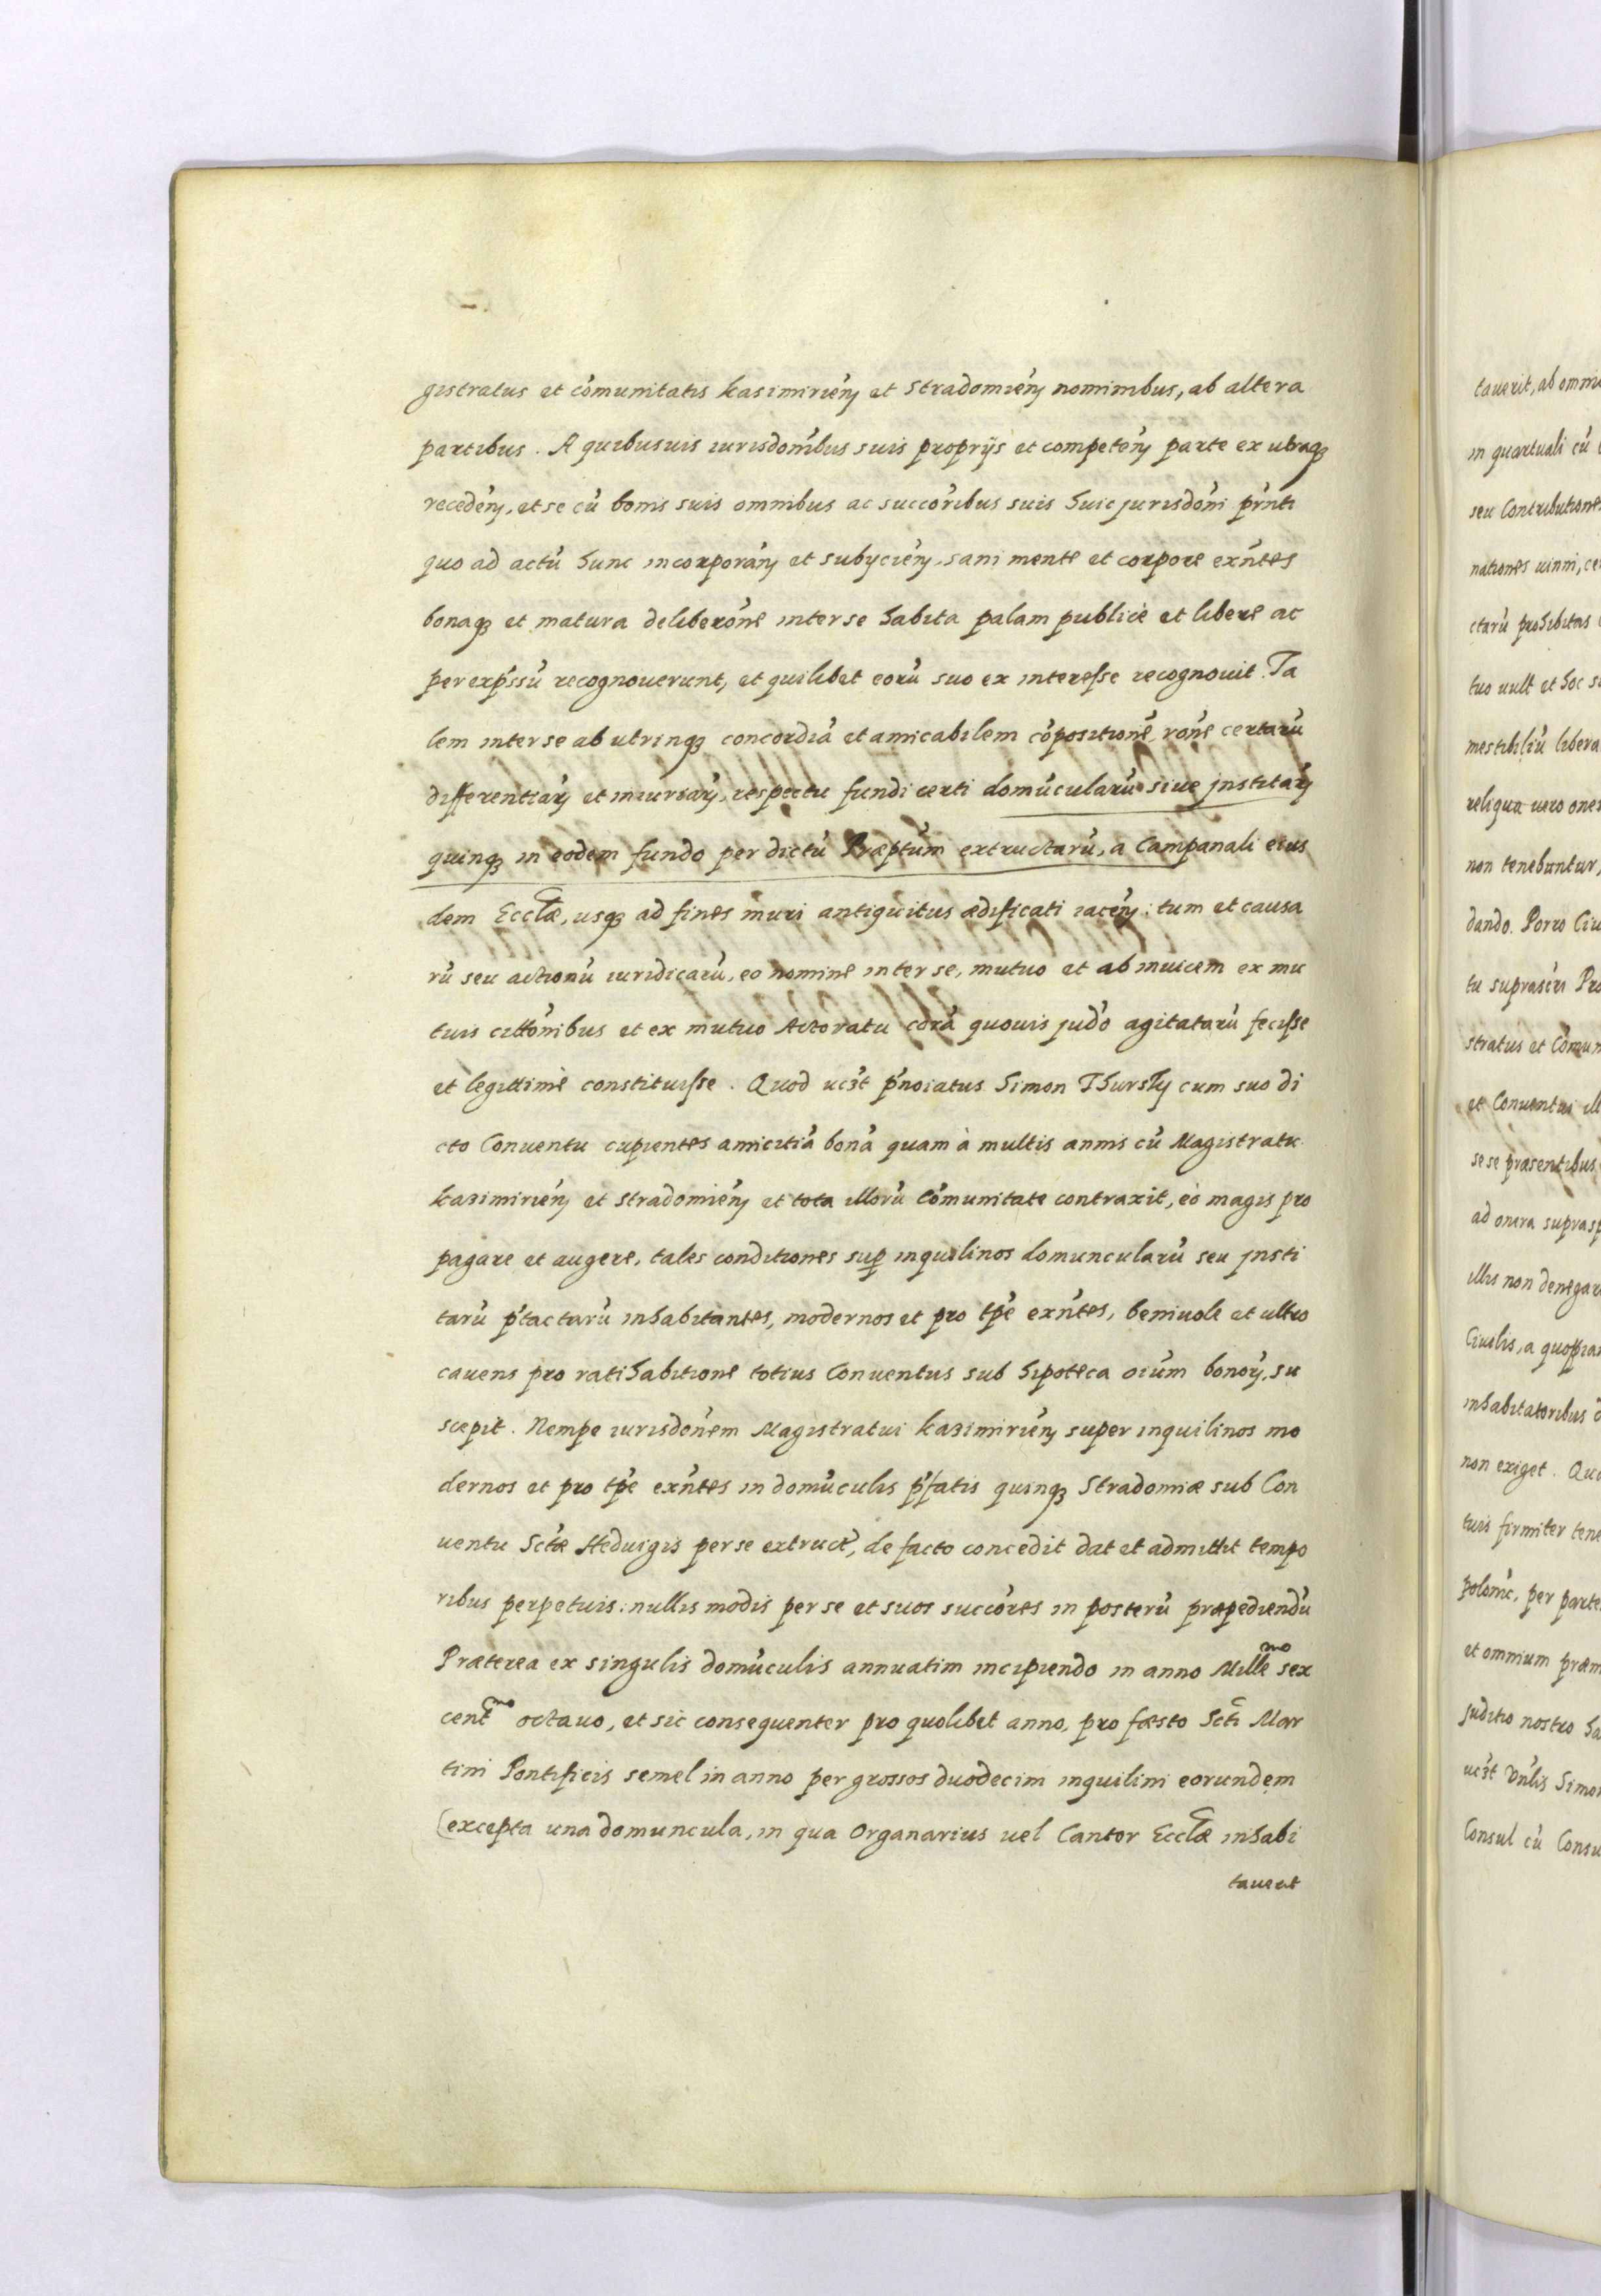 gistratus et cōmunitatis Kasimirien̄ et Stradomien̄ nominibus, ab altera
partibus. A quibusuis iurisdon̄ibus suis proprijs et competen̄ parte ex utraqꝫ
receden̄, et se cū bonis suis omnibus ac succōribus suis huic jurisdōni pr̄nti
quo ad actū hunc incorporan̄ et subijcien̄, sani mente et corpore exn̄tes
bonaqꝫ et matura deliberōne inter se habita palam publicè et libere ac
per exp̄ssū recognouerunt, et quilibet eorū suo ex interesse recognouit. Ta
lem inter se ab utrinqꝫ concordiā et amicabilem cōpositionē rōne certarū
differentiarꝝ et iniuriarꝝ, respectu fundi certi domūcularū siue institarꝝ
quinqꝫ in eodem fundo per dictū Præptūm extructarū, a Campanali eius
dem Eccl̄æ, usqꝫ ad fines muri antiquitus ædificati iacen̄: tum et causa
rū seu actionū iuridicarū, eo nomine inter se, mutuo et ab inuicem ex mu
tuis citt̄onibus et ex mutuo Actoratu corā quouis judō agitatarū fecisse
et legittimè constituisse. Quod ucꝫt p̄noiatus Simon Thursky cum suo di
cto Conuentu cupientes amicitiā bonā quam à multis annis cū Magistratu
Kazimirien̄ et Stradomien̄ et tota illorū Cōmunitate contraxit, eò magis pro
pagare et augere, tales conditiones sup̱ inquilinos domuncularū seu insti
tarū p̄tactarū inhabitantes, modernos et pro tp̄e exn̄tes, beniuole et ultro
cauens pro ratihabitione totius Conuentus sub hipoteca oium̄ bonorꝝ, su
scepit. Nempe iurisdōnem Magistratui Kazimirien̄ super inquilinos mo
dernos et pro tp̄e exn̄tes in domūculis p̄fatis quinqꝫ Stradomiæ sub Con
uentu Sctæ Heduigis per se extruct̄, de facto concedit dat et admittit tempo
ribus perpetuis: nullis modis per se et suos succōres in posterū præpediendū
Præterea ex singulis domūculis annuatim incipiendo in anno Mille͞mo sex
cent͞mo octauo, et sic consequenter pro quolibet anno, pro fæsto Scti Mar
tini Pontificis semel in anno per grossos duodecim inquilini eorundem
(excepta una domuncula, in qua Organarius uel Cantor Eccl̄æ inhabi
tauerit
tauerit, ab omni
in quartuali cū
seu Contributiones
nationes uinni, ce
ctarū prohibitas
tuo uult et hoc
mestibiliū libera
reliqua uero one
non tenebuntur,
dando. Porro Ciu
tu suprascri Pro
stratus et Cōmun
et Conuentui ill
se se præsentibus
ad onera suprasp
illis non denegar
Ciuilis, a quopia
inhabitatoribus d
non exiget. Quo
tuis firmiter tene
polonic̄, per parte
et omnium præm
juditio nostro ha
ucꝫt Dn̄lis Simon
Consul cū Consu